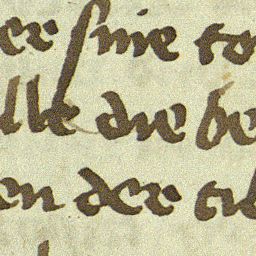 er sine to
lle die be
en der